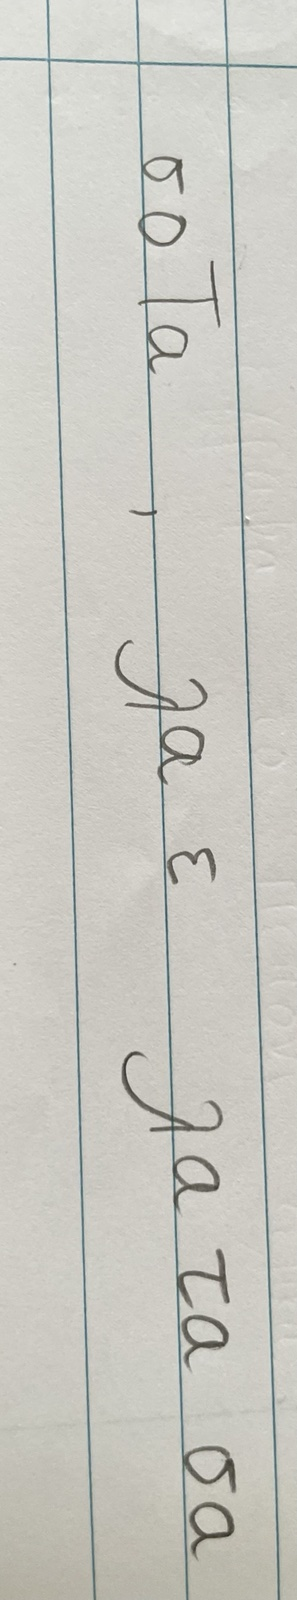 σο Τα , λα ε λα τα σα